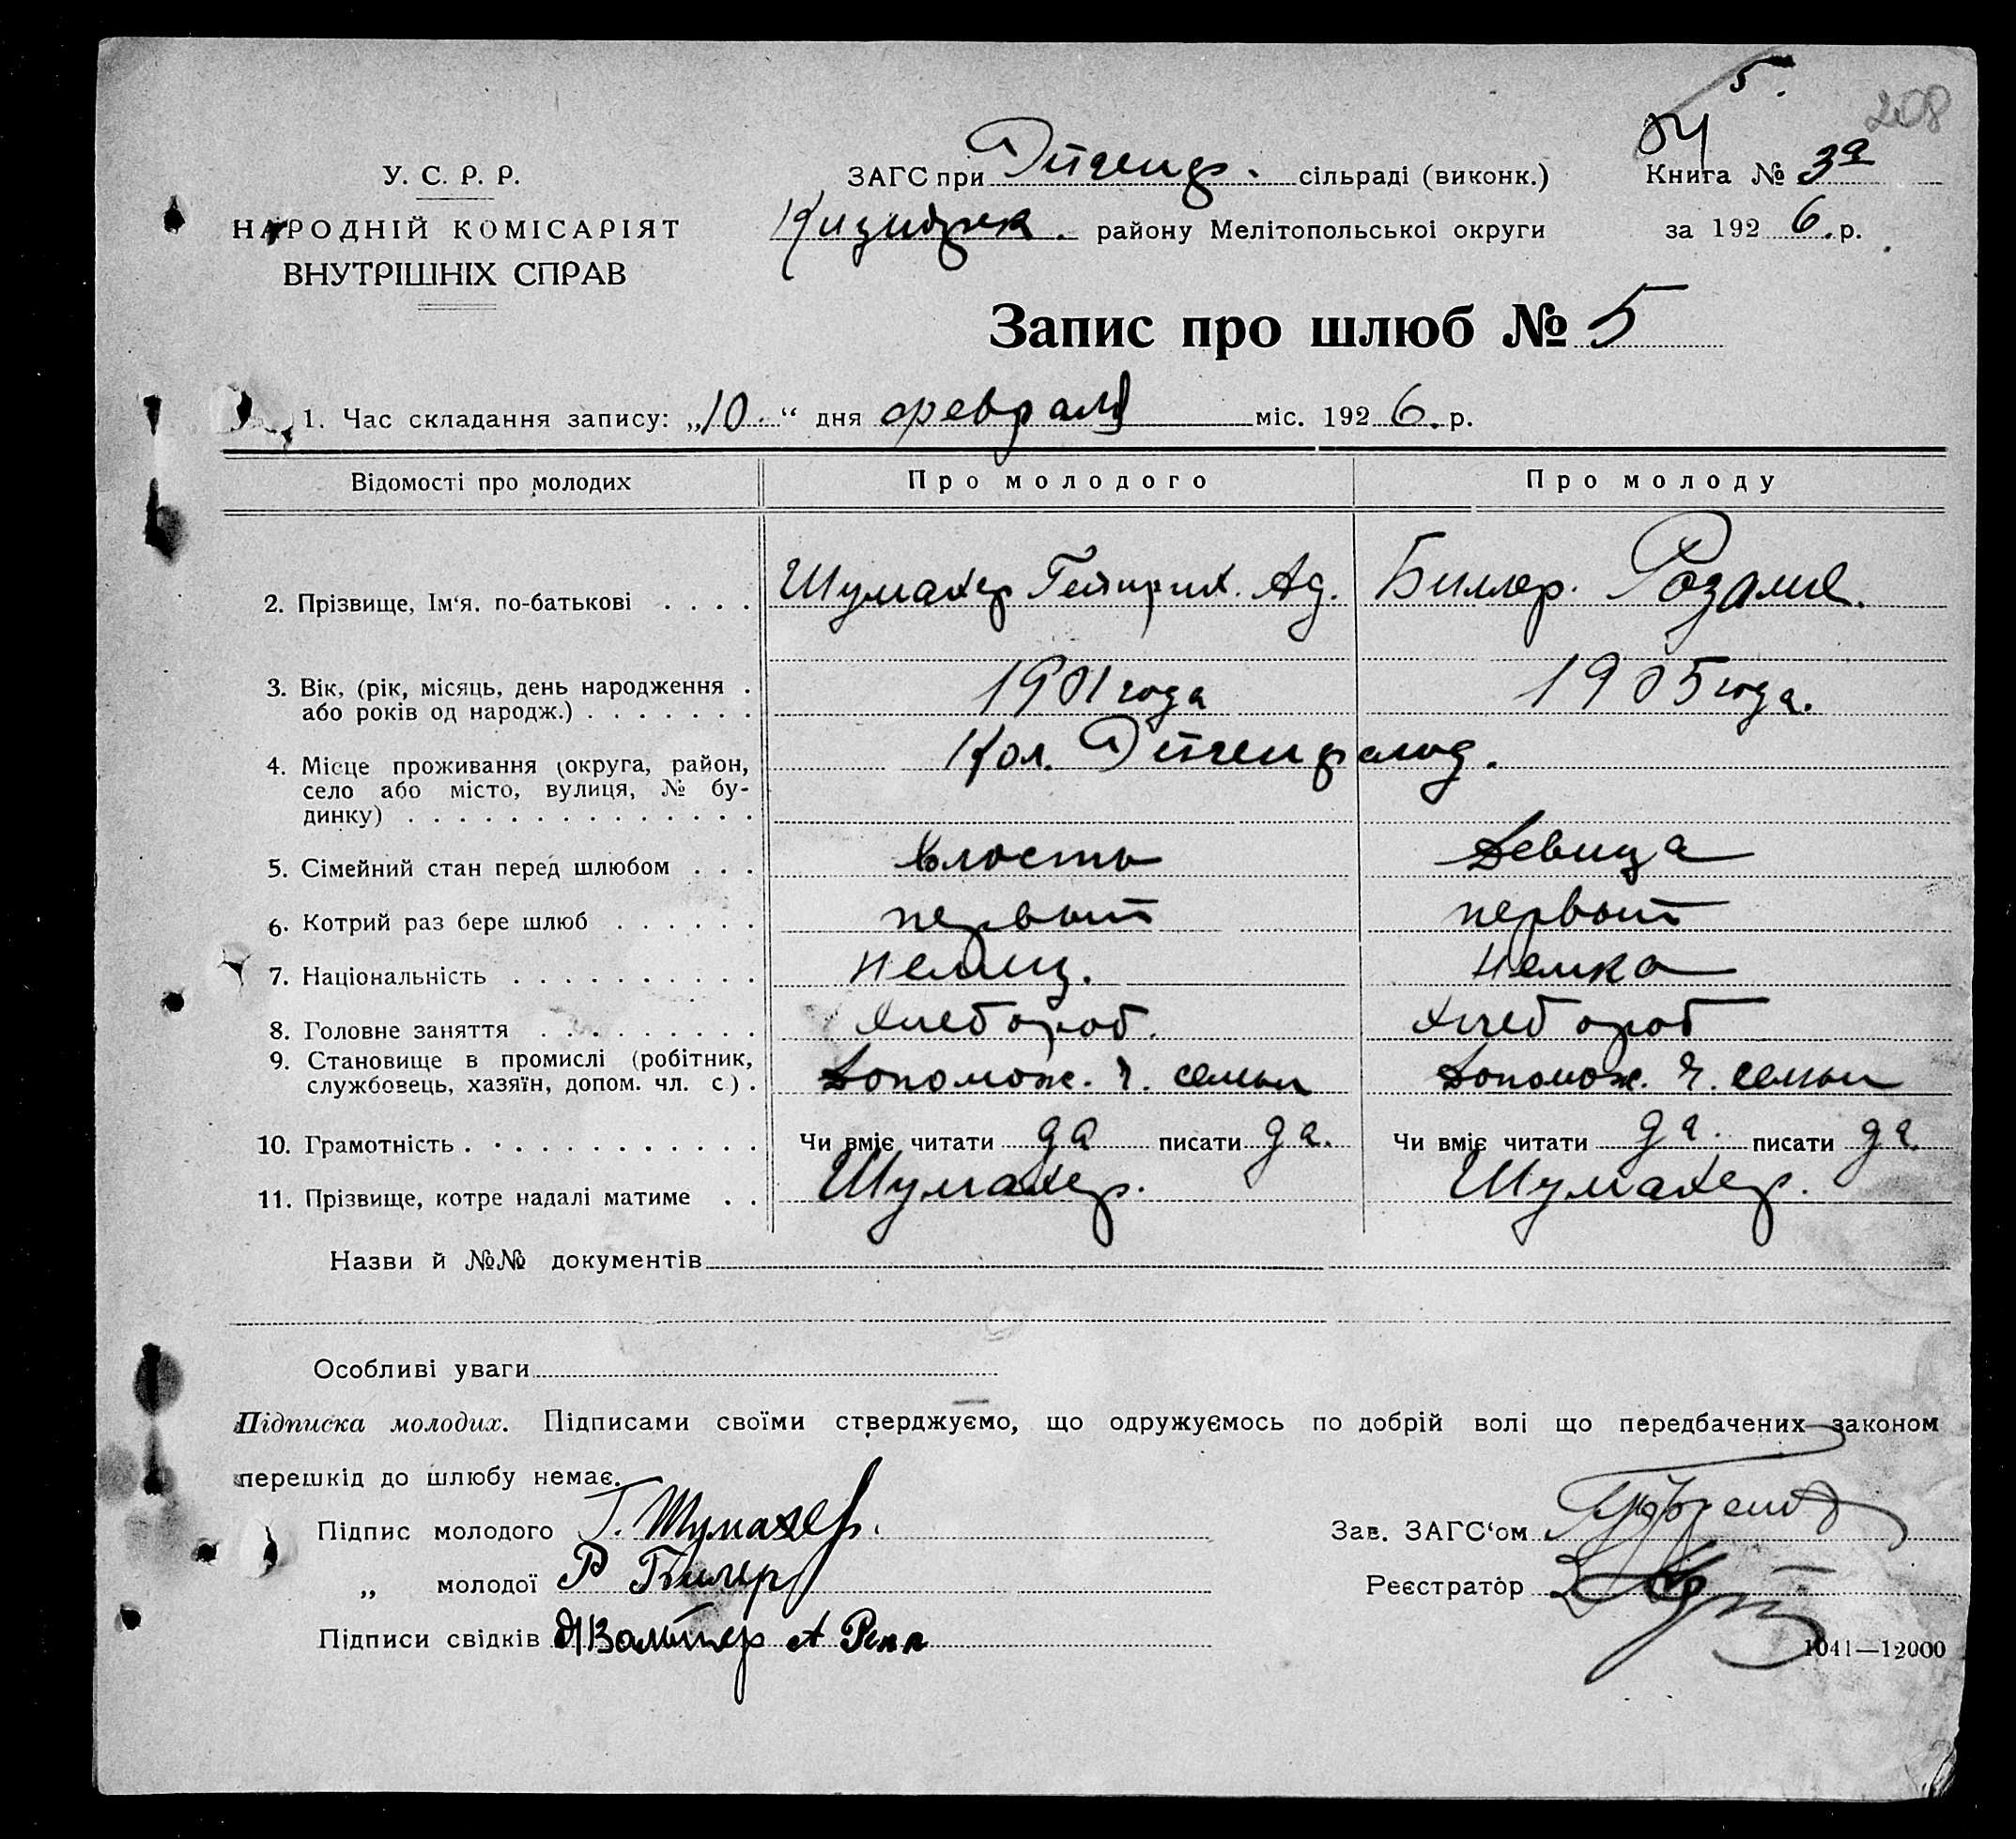 5.
208
У. С. Р. Р.
НАРОДНІЙ КОМІСАРІЯТ
ВНУТРІШНІХ СПРАВ
ЗАГС при Эйгенф. сільраді (виконк.)
района Мелітопольської округи
Книга № 3а
за 1926. р.
Запис про шлюб № 5
1. Час складання запису: „10.“ дня февраля міс. 1926. р.
Відомості про молодих
Про молодого
Про молоду
2. Прізвище, Ім‘я, по-батькові . . . .
Шумахер Гейнрих. Ад.
Биллер. Розалие.
3. Вік, (рік, місяць, день народження .
або років од народж.) . . . . . . .
1901 года
1905 года.
4. Місце проживання (округа, район,
село або місто, вулиця, № бу-
динку) . . . . . . . . . . . . . .
Кол. Эйгенфельд.
5. Сімейний стан перед шлюбом . . .
Холость
Девица
6. Котрий раз бере шлюб . . . . . .
первый
первый
7. Національність . . . . . . . . . .
Немец.
Немка
8. Головне заняття . . . . . . . . .
хлебороб.
хлебороб
9. Становище в промислі (робітник,
службовець, хазяїн, допом. чл. с.) .
Допомож. ч. семьи
Допомож. ч. семьи
10. Грамотність . . . . . . . . . . . .
Чи вміє читати да писати да.
Чи вміє читати да. писати да
11. Прізвище, котре надалі матиме . .
Шумахер.
Шумахер.
Назви й №№ документів
Особливі уваги
Підписка молодих. Підписами своїми стверджуємо, що одружуємось по добрій волі що передбачених законом
перешкід до шлюбу немає.
Підпис молодого Г. Шумахер.
„ молодої Р Биллер
Підписи свідків Вальтер А Репп
Зав. ЗАГС‘ом
Реєстратор
1041—12000